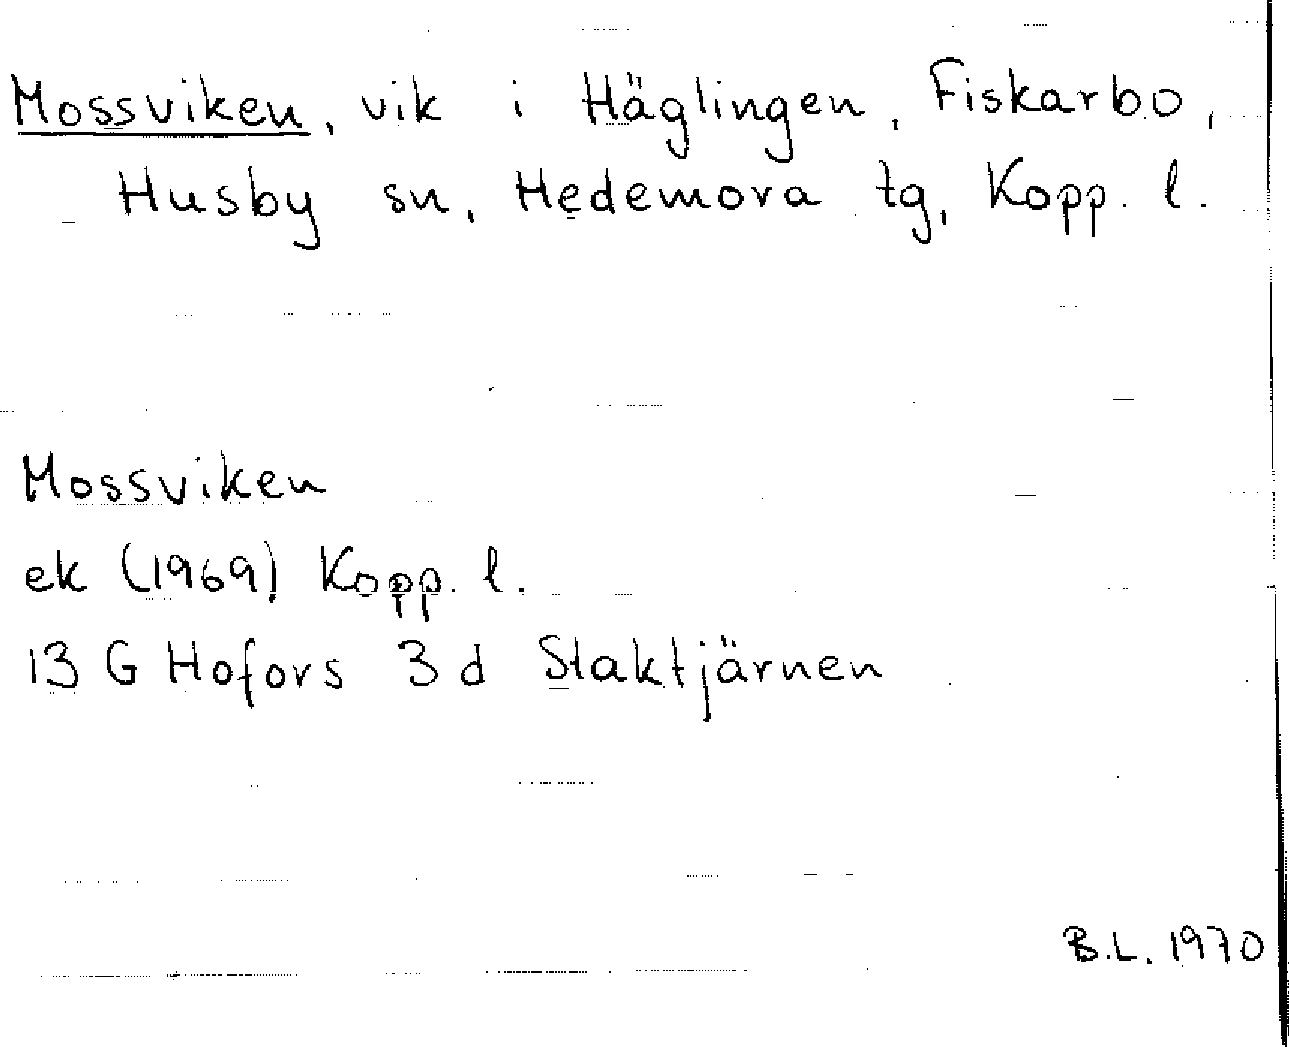 Mossviken, vik i Häglingen, Fiskarbo,
Husby sn, Hedemora tg, Kopp. l.
Mossviken
ek (1969) Kopp. l.
13 G Hofors 3 d Staktjärnen
B.L. 1970